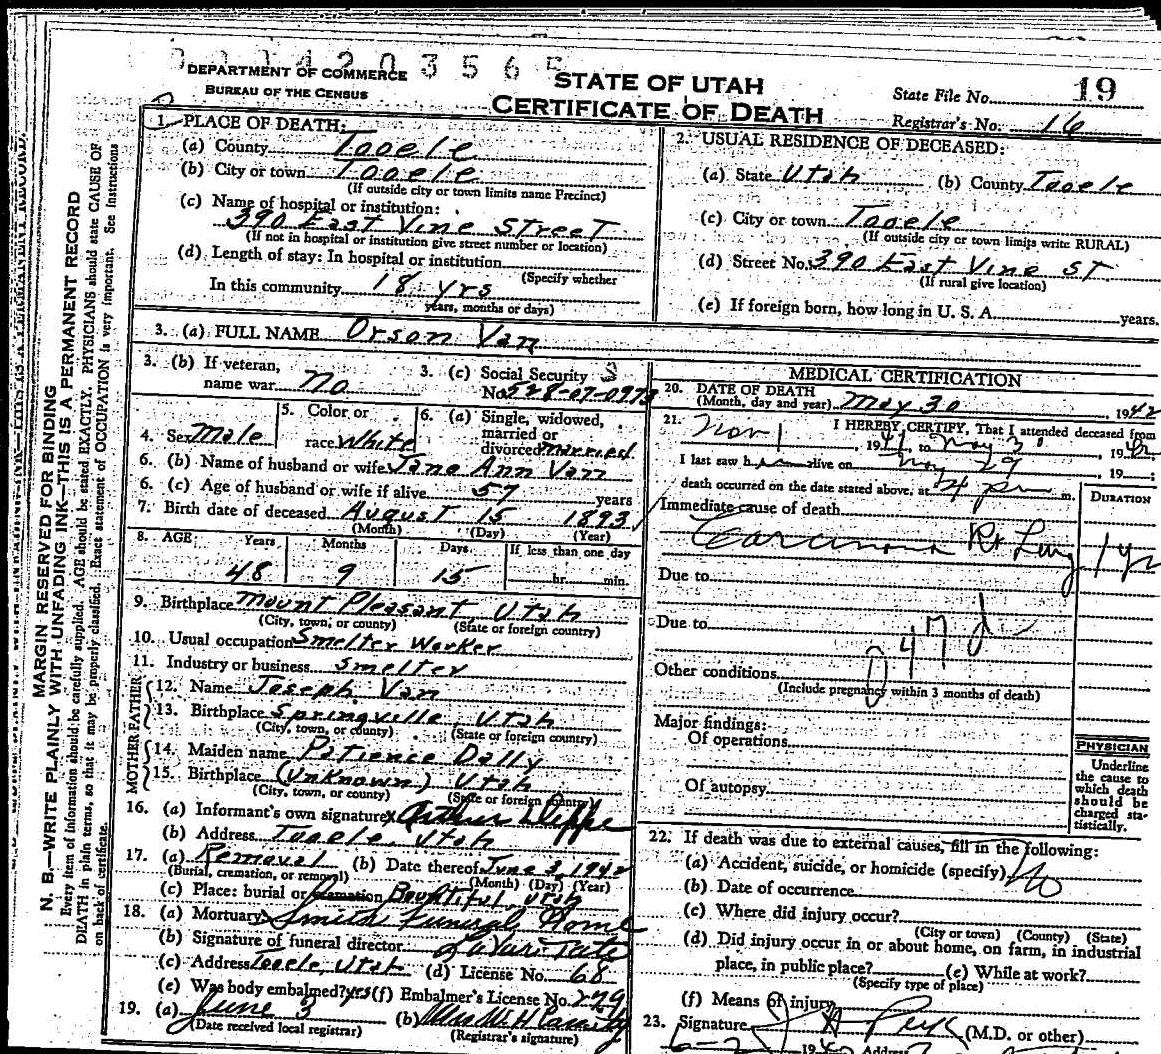 DEPARTMENT OF COMMERCE
BUREAU OF THE CENSUS
STATE OF UTAH
CERTIFICATE OF DEATH
State File No. 19
Registrar's No. 16
MARGIN RESERVED FOR BINDING
N. B.—WRITE PLAINLY WITH UNFADING INK—THIS IS A PERMANENT RECORD
Every item of information should be carefully supplied. AGE should be stated EXACTLY. PHYSICIANS should state CAUSE OF
DEATH in plain terms, so that it may be properly classified. Exact statement of OCCUPATION is very important. See Instructions
on back of certificate.
1. PLACE OF DEATH:
(a) County Tooele
(b) City or town Tooele
(If outside city or town limits name Precinct)
(c) Name of hospital or institution:
390 East Vine Street
(If not in hospital or institution give street number or location)
(d) Length of stay: In hospital or institution
(Specify whether
In this community 18 yrs
years, months or days)
2. USUAL RESIDENCE OF DECEASED:
(a) State Utah (b) County Tooele
(c) City or town Tooele
(If outside city or town limits write RURAL)
(d) Street No. 390 East Vine St
(If rural give location)
(e) If foreign born, how long in U. S. A. years.
3. (a) FULL NAME Orson Van
3. (b) If veteran, name war No
3. (c) Social Security No. 528-07-0973
4. Sex Male
5. Color or race White
6. (a) Single, widowed, married or divorced married
6. (b) Name of husband or wife Jane Ann Van
6. (c) Age of husband or wife if alive 57 years
7. Birth date of deceased August 15 1893
(Month) (Day) (Year)
8. AGE: Years Months Days If less than one day
48 9 15 hr. min.
9. Birthplace Mount Pleasant, Utah
(City, town, or county) (State or foreign country)
10. Usual occupation Smelter Worker
11. Industry or business Smelter
FATHER
12. Name Joseph Van
13. Birthplace Springville, Utah
(City, town, or county) (State or foreign country)
MOTHER
14. Maiden name Patience Dally
15. Birthplace (Unknown) Utah
(City, town, or county) (State or foreign country)
16. (a) Informant's own signature Arthur Dieppe
(b) Address Tooele, Utah
17. (a) Removal (b) Date thereof June 3, 1942
(Burial, cremation, or removal) (Month) (Day) (Year)
(c) Place: burial or cremation Bountiful, Utah
18. (a) Mortuary Smith Funeral Home
(b) Signature of funeral director LaVar Tate
(c) Address Tooele, Utah (d) License No. 68
(e) Was body embalmed? yes (f) Embalmer's License No. 279
19. (a) June 3 (b) Mrs W. H.
(Date received local registrar) (Registrar's signature)
MEDICAL CERTIFICATION
20. DATE OF DEATH
(Month, day and year) May 30, 1942
21. I HEREBY CERTIFY, That I attended deceased from
Nov 1, 1941, to May 30, 1942
I last saw him alive on May 29, 19
death occurred on the date stated above, at 4 pm m.
DURATION
Immediate cause of death
Carcinoma Rt Lung 1 yr
Due to
Due to
47 d
Other conditions
(Include pregnancy within 3 months of death)
Major findings:
Of operations
Of autopsy
PHYSICIAN
Underline
the cause to
which death
should be
charged sta-
tistically.
22. If death was due to external causes, fill in the following:
(a) Accident, suicide, or homicide (specify) No
(b) Date of occurrence
(c) Where did injury occur?
(City or town) (County) (State)
(d) Did injury occur in or about home, on farm, in industrial
place, in public place? (e) While at work?
(Specify type of place)
(f) Means of injury
23. Signature J H Peck (M.D. or other)
6-2 1942 Address